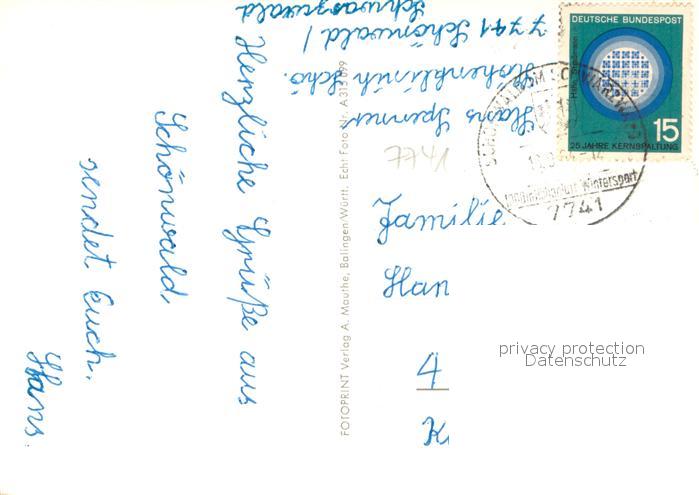 Herzliche Grüße aus
Schönwald,
sendet Euch.
Hans.
FOTOPRINT Verlag A. Mauthe, Balingen/Württ. Echt Foto Nr. A 313 099
Hans
7741 Schönwald /
Schwarzwald
1477
DEUTSCHE BUNDESPOST
15
25 JAHRE KERNSPALTUNG
Wintersport
7741
Familie
Han
4
K
privacy protection
Datenschutz